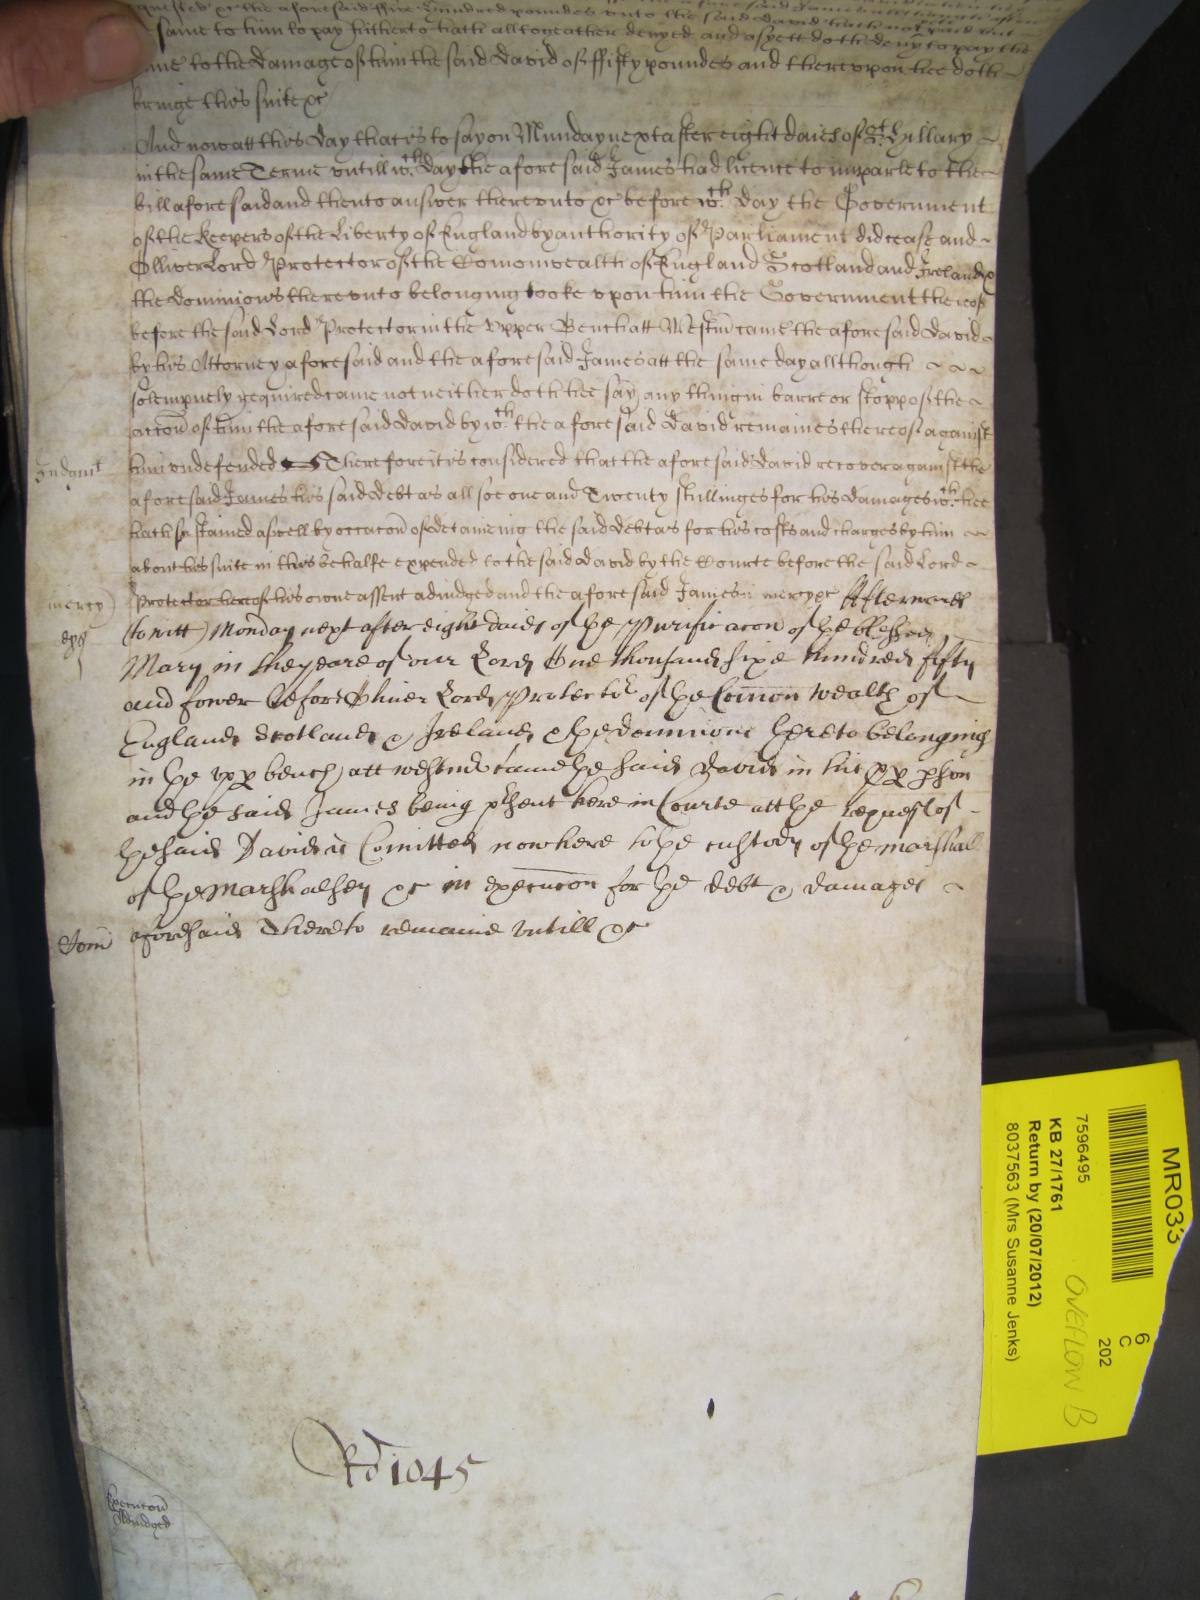 quested &c the aforesaid ffive hundred poundes unto the said David hath not paid but
same to him to pay hitherto hath alltogeather denyed and as yett doth deny to pay the
same to the damage of him the said David of ffifty poundes and thereupon hee doth
bringe this suite &c
And now att this day that is to say on Munday next after eight daies of St. Hillary
in the same Terme untill wch. day the aforesaid James had licence to imparle to the
bill aforesaid and then to answer thereunto &c before wch. day the Government
of the Keepers of the Liberty of England by authority of Parliament did cease and
Olliver Lord Protector of the Comonwealth of England Scotland and Ireland &
the Dominions thereunto belonging tooke upon him the Government thereof
before the said Lord Protector in the Upper Bench att Westmr came the aforesaid David
by his Attorney aforesaid and the aforesaid James att the same day allthough
solempnely required came not neither doth hee say any thing in barre or stopp of the
accon of him the aforesaid David by wch. the aforesaid David remaines thereof against
Judgmt him undefended Therefore it is considered that the aforesaid David recover against the
aforesaid James his said debt as allsoe one and Twenty shillinges for his damages wch. hee
hath sustained aswell by occacon of detaineing the said debt as for his costs and charges by him
about his suite in this behalfe expended to the said David by the Courte before the said Lord
mercy Protector hereof his owne assent adiudged and the aforesaid James in mercy &c Afterwards
(to witt) Monday next after eight daies of the Purificacon of the blessed
Mary in the yeare of our Lord One thousand sixe hundred fifty
and fower before Oliver Lord Protector of the Comon wealth of
England Scotland & Ireland & the dominions thereto belonging
in the upp bench att westmr came the said David in his pp pson
and the said James being psent here in Courte att the request of
the said David is Comitted now here to the custody of the marshall
of the Marshalsey &c in execucon for the debt & damages
Com aforesaid There to remaine untill &c
Rd 1045
Execucon
Adiudged
MR033
6
C
202
7596495
KB 27/1761
Return by (20/07/2012)
8037563 (Mrs Susanne Jenks)
OVEFLOW B